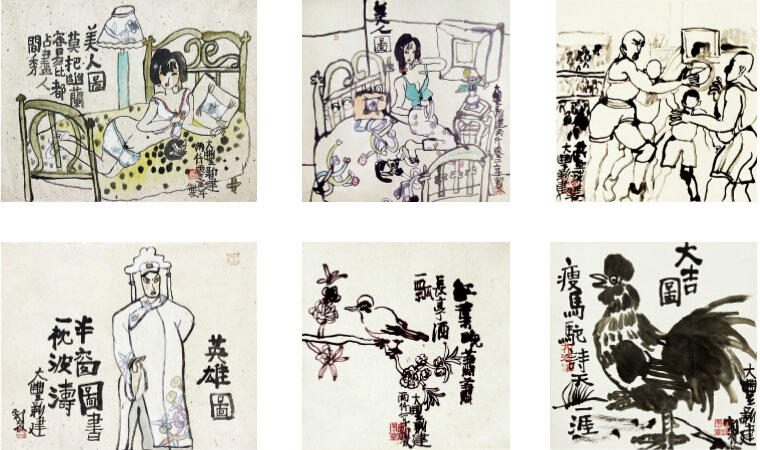 美人圖
莫把幽蘭
容易比都
占盡人
間秀
大豐新建
美人圖
大豐新建
大豐新建
英雄圖
半窗圖書
一枕波濤
大豐新建
紅葉晚蕭蕭
長亭酒
一瓢
大豐新建
大吉
圖
瘦馬馱詩天一涯
大豐新建